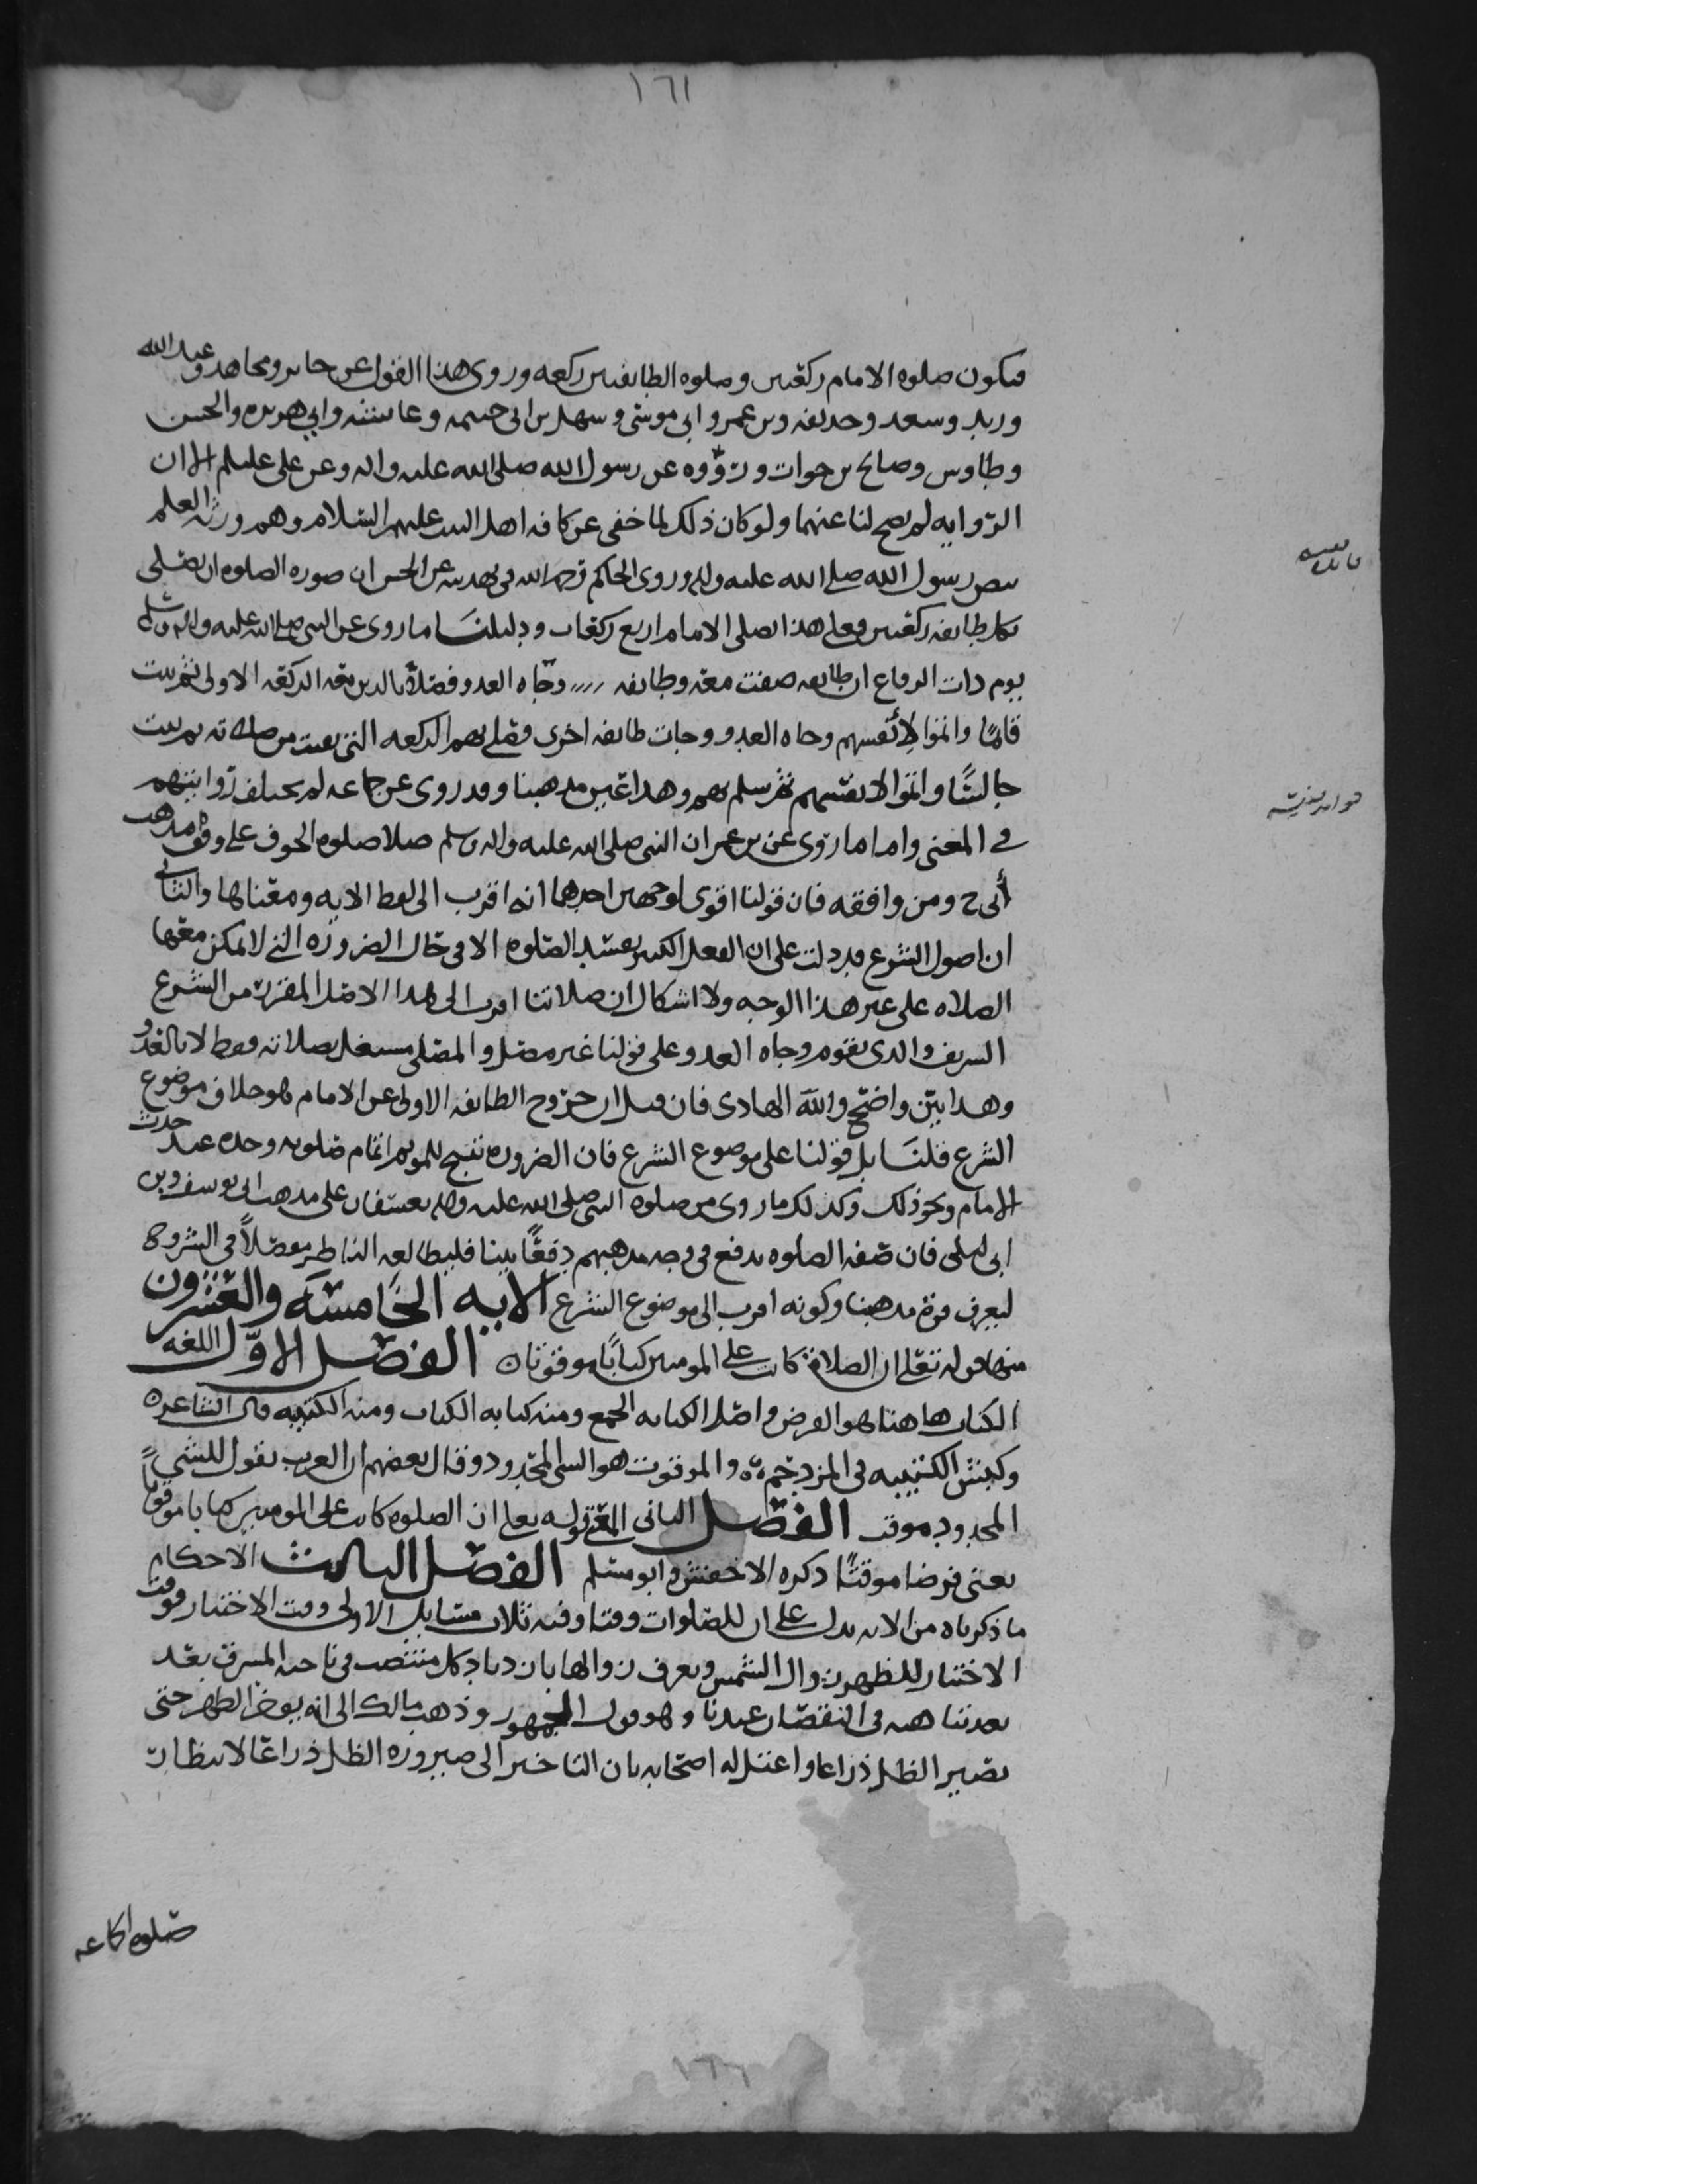 ١٦١
فيكون صلوه الامام ركعتين وصلوه الطايفتين ركعه وروى هذا القول عن جابر ومجاهد وعبد الله
وزيد وسعد وحذيفه وبن عمر وابى موسى وسهل بن ابى حثمه وعائشه وابي هريره والحسن
وطاوس وصالح بن خوات ورووه عن رسول الله صلى الله عليه واله وعن علي عليلم الا ان
الروايه لم يصح لنا عنهما ولو كان ذلك لما خفى عن كافه اهل البيت عليهم السلام وهم ورثه العلم
بنص رسول الله صلى الله عليه واله وروى الحاكم رحمه الله فى تهذيبه عن الحسن ان صوره الصلوه ان يصلى
بكل طايفه ركعتين فعلى هذا يصلى الامام اربع ركعات ودليلنا ما روى عن النبى صلى الله عليه واله وسلم
يوم ذات الرقاع ان طايفه صفت معه وطايفه وجاه العدو فصلا بالذين معه الركعه الاولى ثم ثبت
قائما واتموا لأنفسهم وجاه العدو وجات طايفه اخرى فصلى بهم الركعه التى بقيت من صلاته ثم ثبت
جالسًا واتموا لانفسهم ثم سلم بهم وهذا عين مذهبنا وقد روى عن جماعه لم يختلف روايتهم
في المعنى واما ما روى عن بن عمر ان النبى صلى الله عليه واله وسلم صلا صلوه الخوف على وفق مذهب
أبى ح ومن وافقه فان قولنا اقوى لوجهين احدهما انه اقرب الى لفظ الايه ومعناها والثانى
ان اصول الشرع قد دلت على ان الفعل الكثير يفسد الصلوه الا فى حال الضروره التى لا يمكن معها
الصلاه على غير هذا الوجه ولا اشكال ان صلاتنا اقرب الى هذا الاصل المقرر من الشرع
الشريف والذى يقوم وجاه العدو على قولنا غير مصل والمصلى مشتغل بصلاته فقط لا بالعدو
وهذا بين واضح والله الهادى فان قيل ان خروج الطايفه الاولى عن الامام فهو خلاف موضوع
الشرع قلنا بل قولنا على موضوع الشرع فان الضروره تبيح للموتم اتمام صلوته وحده عند حدث
الامام ونحو ذلك وكذلك ما روى من صلوه النبى صلى الله عليه واله بعسفان على مذهب ابى يوسف وبن
ابى ليلى فان صفه الصلوه يدفع فى وجه مذهبهم دفعًا بينا فليطالعه الناظر مفصلاً فى الشروح
ليعرف قوه مذهبنا وكونه اقرب الى موضوع الشرع الايه الخامسه والعشرون
منها قوله تعلى ان الصلاة كانت على المومنين كتابًا موقوتا ن الفصل الاول اللغه
الكتاب هاهنا هو الفرض واصل الكتابه الجمع ومنه كتابه الكتاب ومنه الكتيبه قال الشاعر ه
وكبش الكتيبه فى المزدحم ه والموقوت هو الشى المحدود وقال بعضهم ان العرب يقول للشيء
المحدود موقت الفصل الثانى المعنى قوله تعلى ان الصلوه كانت على المومنين كتابا موقوتًا
يعنى فرضا موقتًا ذكره الاخفش وابو مسلم الفصل الثالث الاحكام
ما ذكرناه من الايه يدل على ان للصلوات وقتا وفيه ثلاث مسايل الاولى وقت الاختيار فوقت
الاختيار للظهر زوال الشمس ويعرف زوالها بازدياد كل منتصب فى ناحيه المشرق بعد
بعد تناهيه فى النقصان عندنا وهو قول الجمهور وذهب مالك الى انه يوخر الظهر حتى
يصير الظل ذراعا واعتل له اصحابه بان التاخير الى صيروره الظل ذراعًا لانتظار
صلوه الجماعه